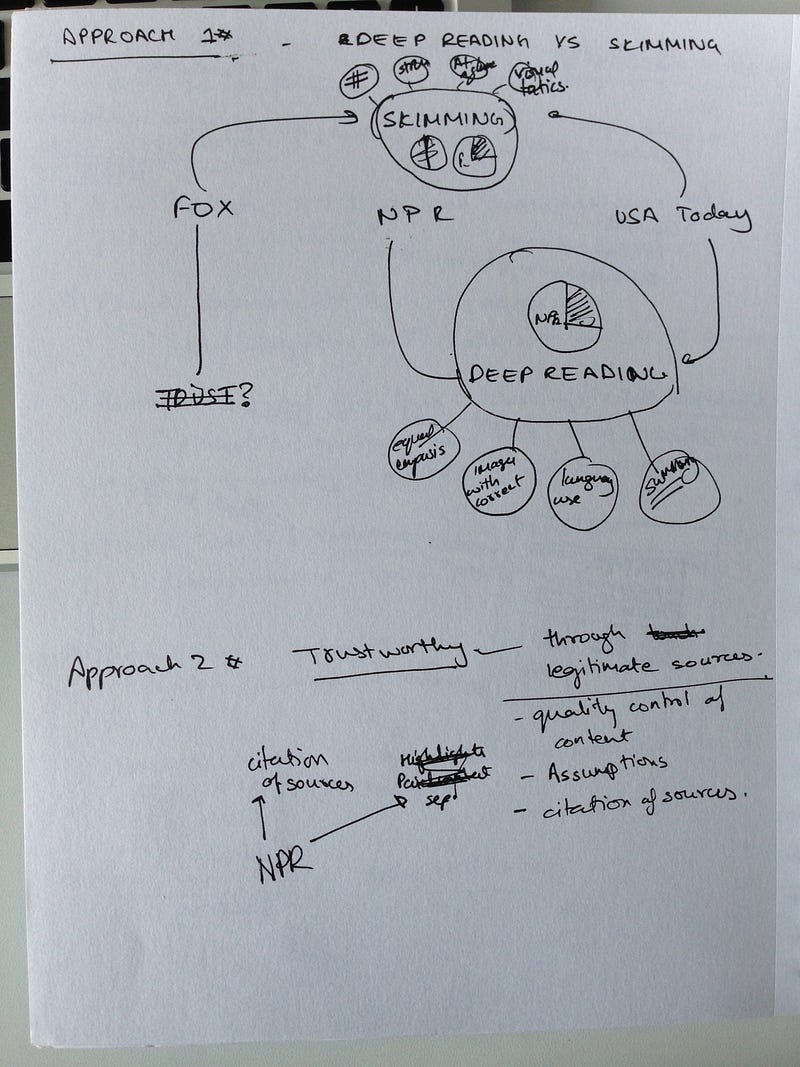 APPROACH 1* - DEEP READING VS SKIMMING
#
visual
tatics.
SKIMMING
FOX
NPR
USA Today
NPR
DEEP READING
?
equal
empasis
images
with
correct
language
use
Approach 2 *
Trustworthy
through
legitimate sources.
- quality control of
content
- Assumptions
- citation of sources.
citation
of sources
Highlights
sep
NPR